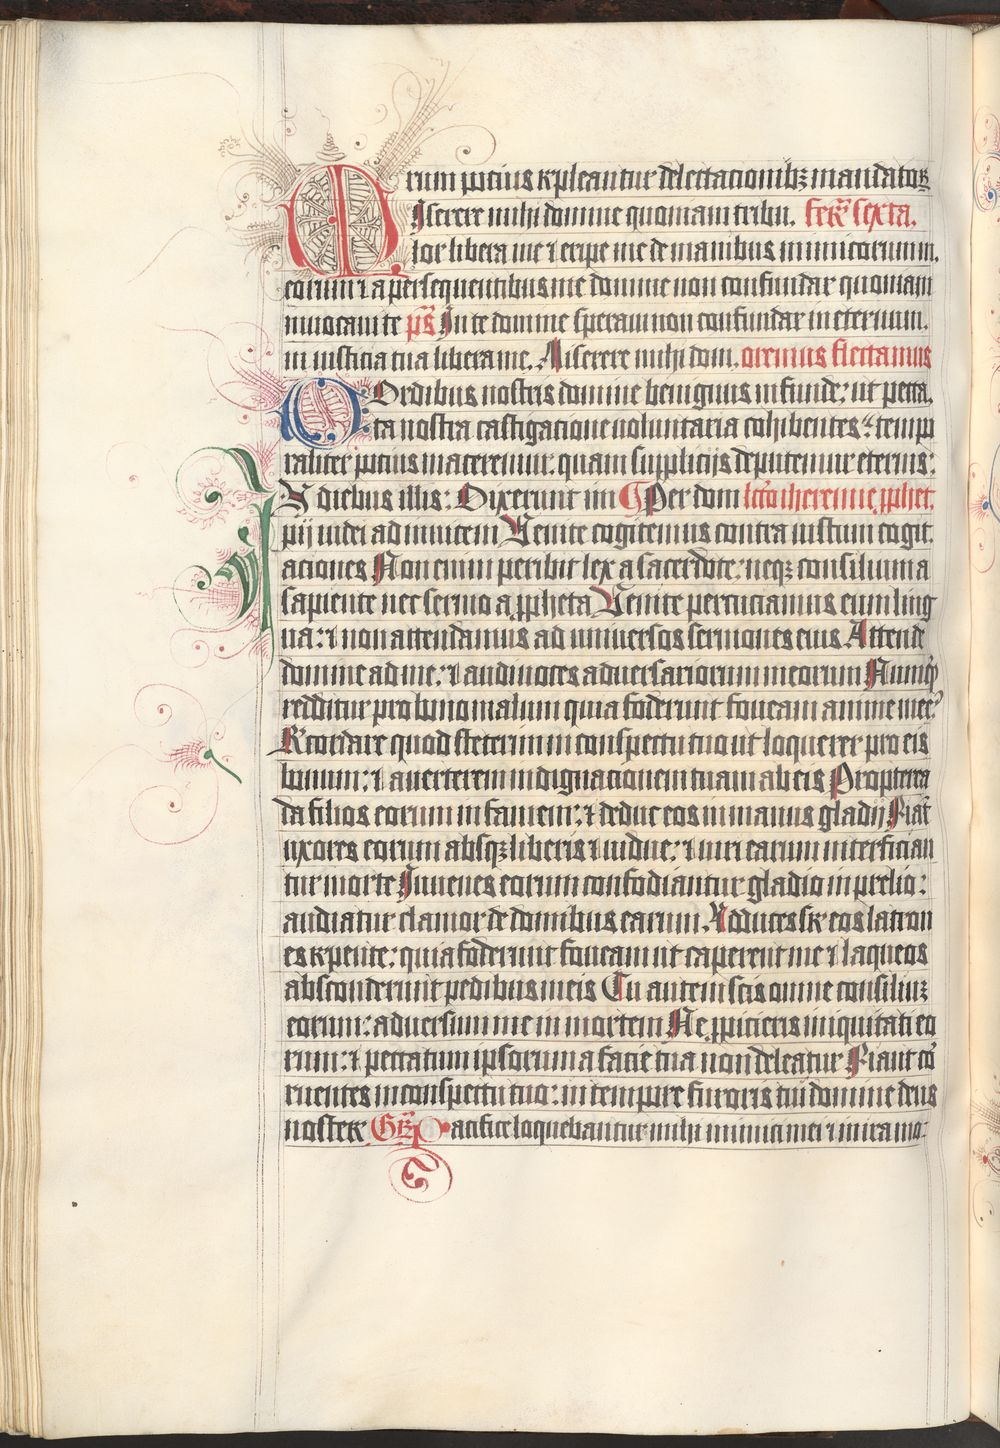 rum pocius repleantur delectacionibꝫ mandatoꝝ
Miserere michi domine quoniam tribu. feria sexta.
lor libera me ⁊ eripe me de manibus inimicorum m.
eorum ⁊ a persequentibus me domine non confundar quoniam
inuocaui te p̄s In te domine speraui non confundar in eternum.
in iusticia tua libera me. Miserere michi dom. oremus flectamus
Cordibus nostris domine benignus infunde: ut pecca,
ta nostra castigacione uoluntaria cohibentes: tempo
raliter pocius maceremur. quam supplicijs deputemur eternis:
In diebus illis: Dixerunt im Per dom lcō iheremie ꝓphet.
pij iudei ad inuicem Venite cogitemus contra iustum cogit.
aciones Non enim peribit lex a sacerdote: neqꝫ consilium a
sapiente nec sermo a ꝓpheta Venite percuciamus eum ling
ua: ⁊ non attendamus ad uniuersos sermones eius Attende
domine ad me: ⁊ audi uoces aduersariorum meorum Numqͥd
redditur pro bono malum quia foderunt foueam anime mee?
Recordare quod steterim in conspectu tuo ut loquerer pro eis
bonum: ⁊ auerterem indignacionem tuam ab eis Propterea
da filios eorum in famem: ⁊ deduc eos in manus gladij Fiāt
uxores eorum absqꝫ liberis ⁊ uidue: ⁊ uiri earum interfician
tur morte Iuuenes eorum confodiantur gladio in prelio:
audiatur clamor de domibus earum. Adduces sr eos latron
es repente: quia foderunt foueam ut caperent me ⁊ laqueos
absconderunt pedibus meis Tu autem scis omne consiliuꝫ
eorum: aduersum me in mortem Ne ꝓpicieris iniquitati eo
rum: ⁊ peccatum ipsorum a facie tua non deleatur Fiant cō
ruentes in conspectu tuo: in tempore furoris tui domine deus
noster Gr̄ Pacifice loquebantur michi inimici mei ⁊ in ira mo: